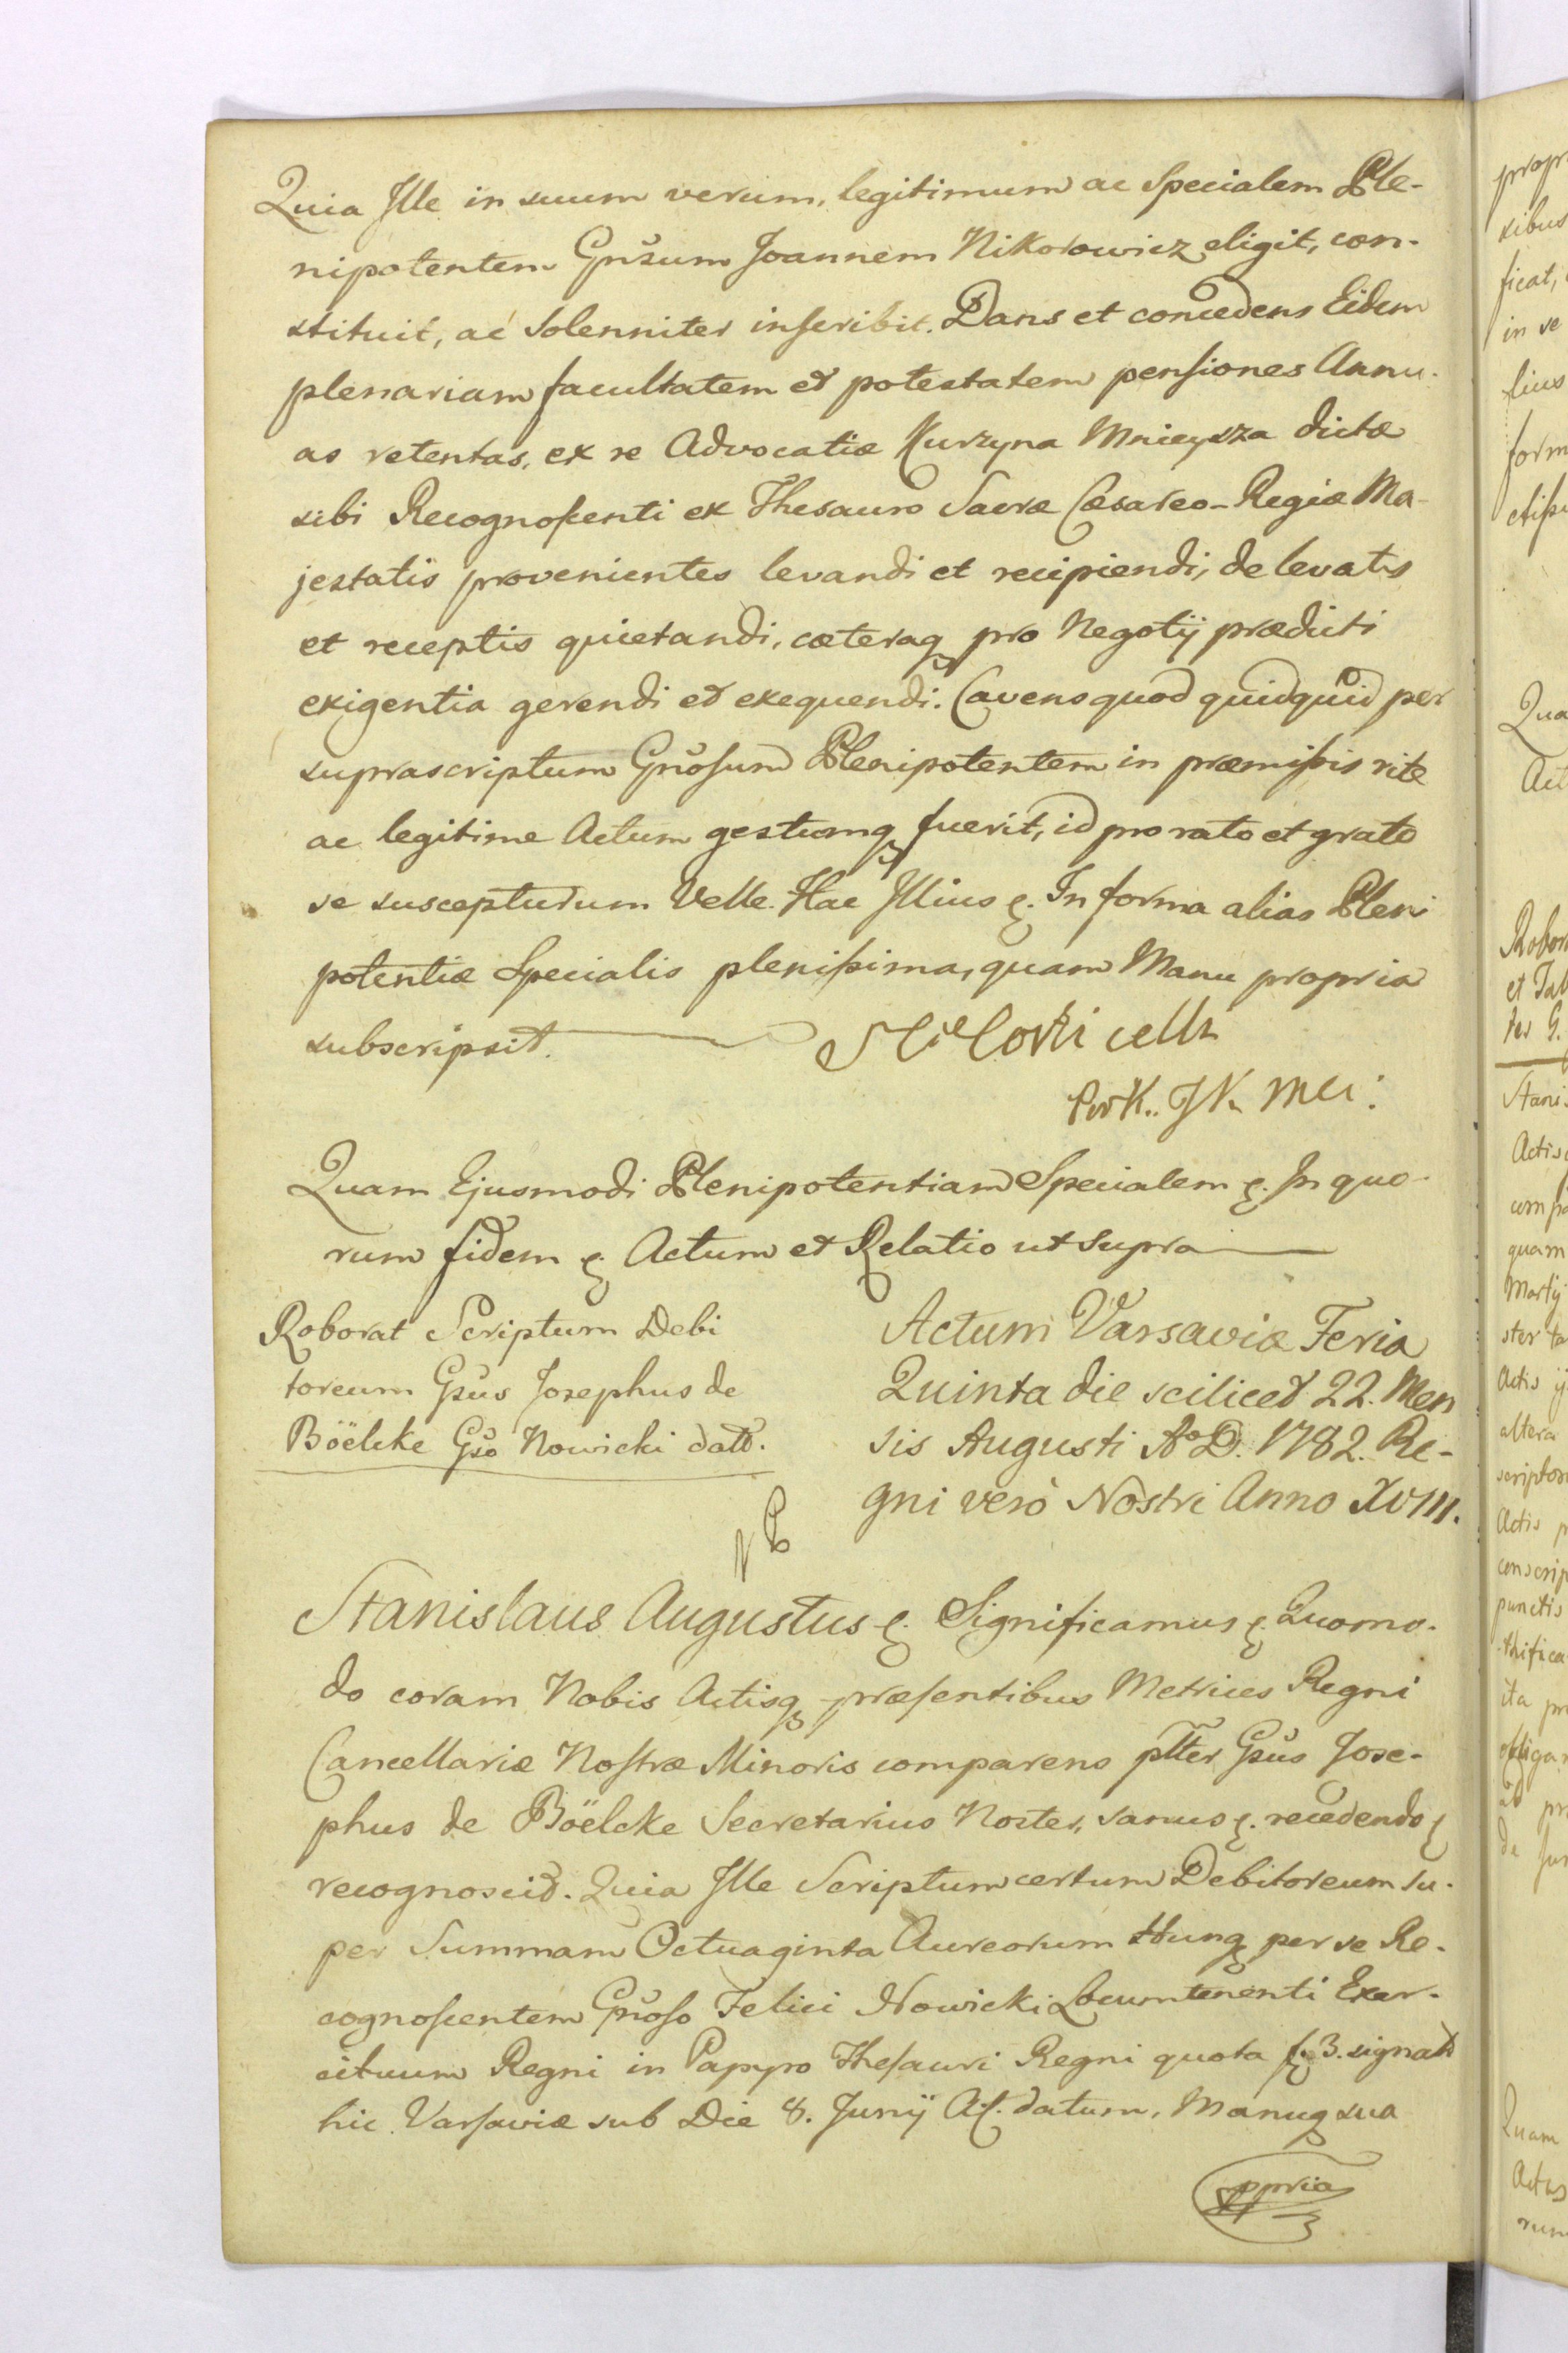 Quia Ille in suum verum, legitimum ac Specialem Ple-
nipotentem Gnŭsum Joannem Nikorowicz eligit, con-
stituit, ac Solenniter inscribit. Dans et concedens Eidem
plenariam facultatem et potestatem pensiones Annu-
as retentas, ex re Advocatiæ Kurzyna Mnieysza dictæ
sibi Recognoscenti ex Thesauro Sacræ Cæsareo-Regiæ Ma-
jestatis provenientes levandi et recipiendi, de levatis
et receptis quietandi, cæteraq pro Negotij prædicti
exigentia gerendi et exequendi. Cavens quod quidquid per
suprascriptum Gnŏsum Plenipotentem in præmissis rite
ac legitime Actum gestumq fuerit, id pro rato et grato
se suscepturum Velle. Hac Illius ę. In forma alias Pleni
potentiæ Specialis plenissima, quam Manu propria
subscripsit.
Quam Ejusmodi Plenipotentiam Specialem ę. In quo-
rum fidem ę. Actum et Relatio ut supra
Roborat Scriptum Debi
toreum Gsŭs Josephus de
Böelcke Gso Nowicki datt.
Actum Varsaviæ Feria
Quinta die scilicet 22. Men
sis Augusti Aº D. 1782. Re-
gni verò Nostri Anno XVIII.
Stanislaus Augustus ę. Significamus ę. Quomo-
do coram Nobis Actisq præsentibus Metrices Regni
Cancellariæ Nostræ Minoris comparens pltter Gsŭs Jose-
phus de Böelcke Secretarius Noster, sanus ę. recedendo ę
recognoscit. Quia Ille Scriptum certum Debitoreum su-
per Summam Octuaginta Aureorum Hung per se Re-
cognoscentem Gnŏso Felici Nowicki Locumtenenti Exer-
cituum Regni in Papyro Thesauri Regni quota fę 3. signato
hic Varsaviæ sub Die 8. Junij A. datum, Manuq sua
ppria